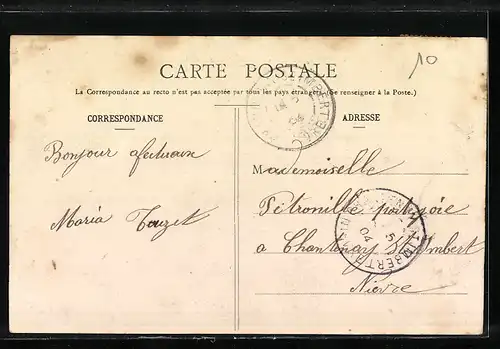 10
CARTE POSTALE
La Correspondance au recto n'est pas acceptée par tous les pays étrangers. (Se renseigner à la Poste.)
CORRESPONDANCE
ADRESSE
Bonjour afectueux
Maria Touzet
Mademoiselle
Pétronille
a Chantenay St Imbert
Nievre
5
04